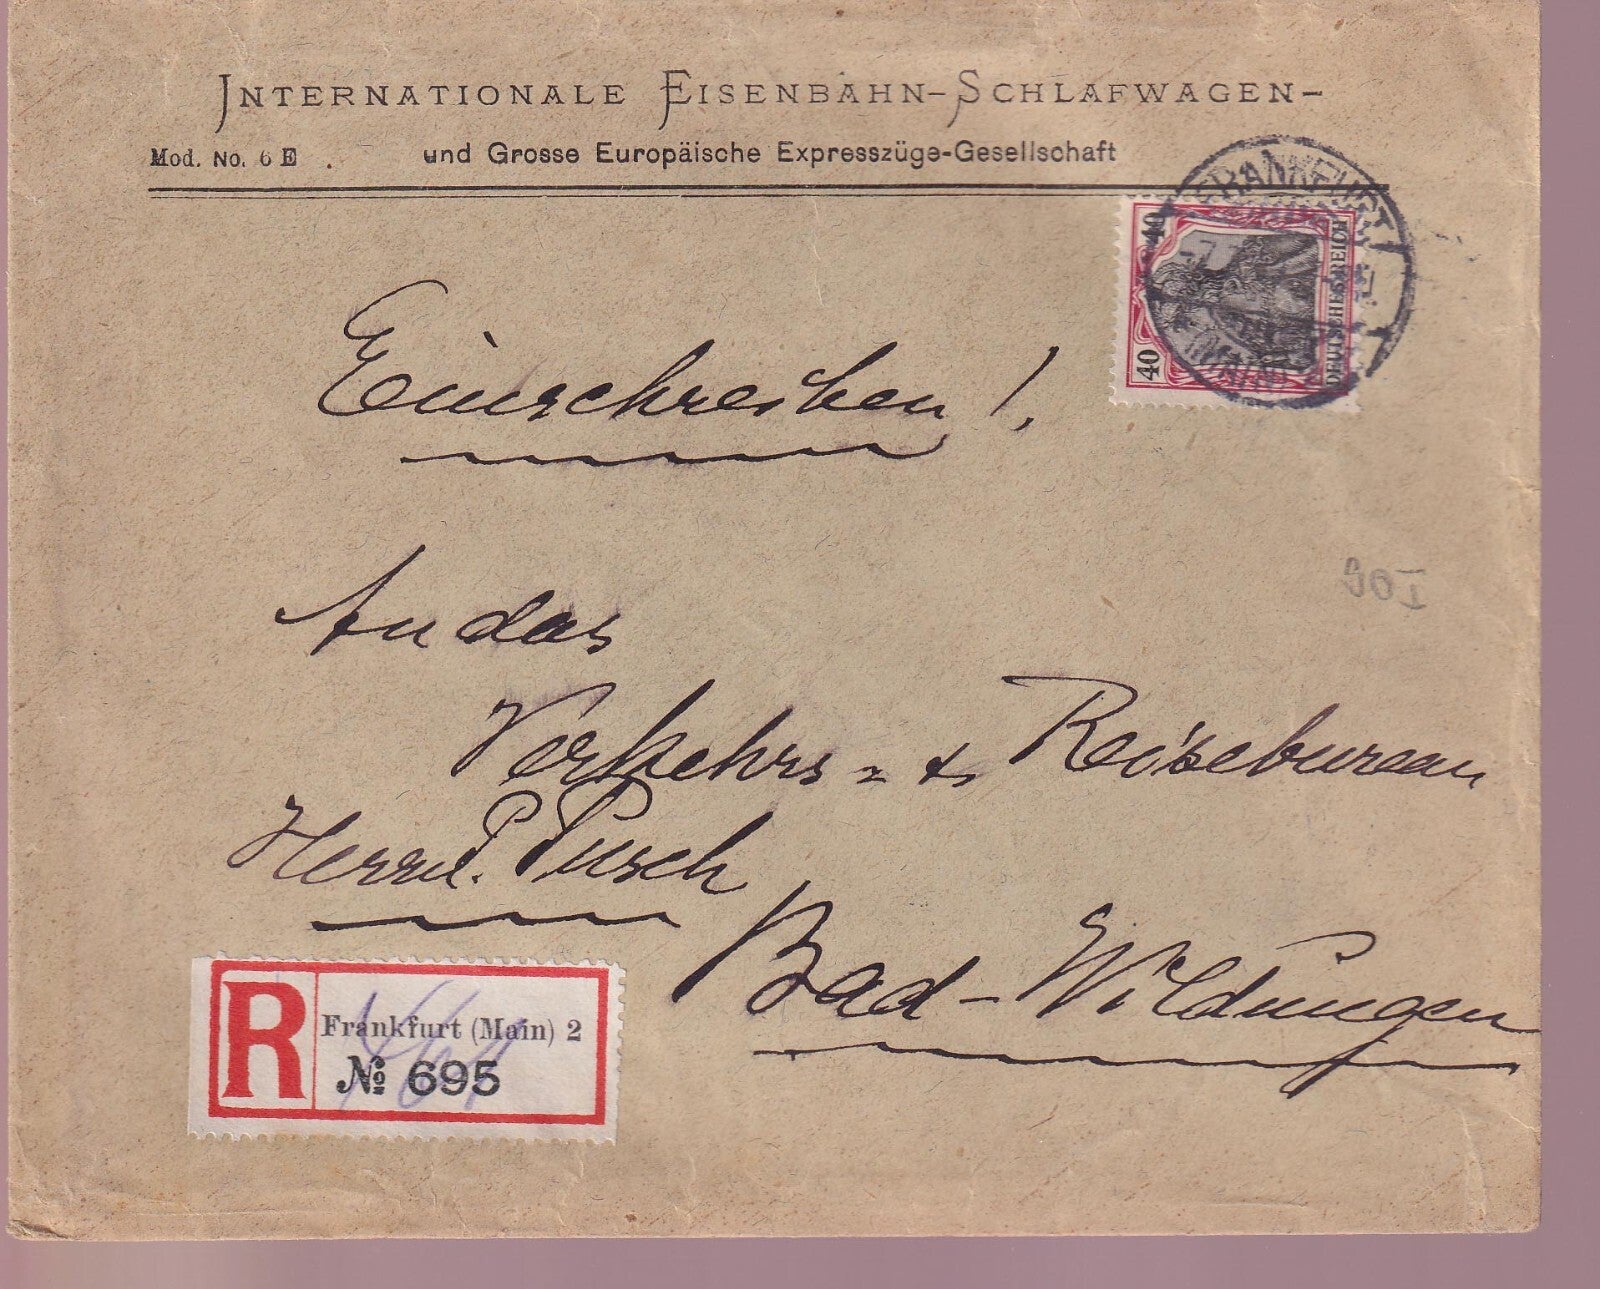 INTERNATIONALE EISENBAHN-SCHLAFWAGEN-
Mod. No. 6 E . und Grosse Europäische Expresszüge-Gesellschaft
FRANKFURT
(MAIN)
40 40
DEUTSCHES REICH
Einschreiben!
An das
Verkehrs- & Reisebureau
Herrn P. Pusch
Bad-Wildungen
R Frankfurt (Main) 2
№ 695